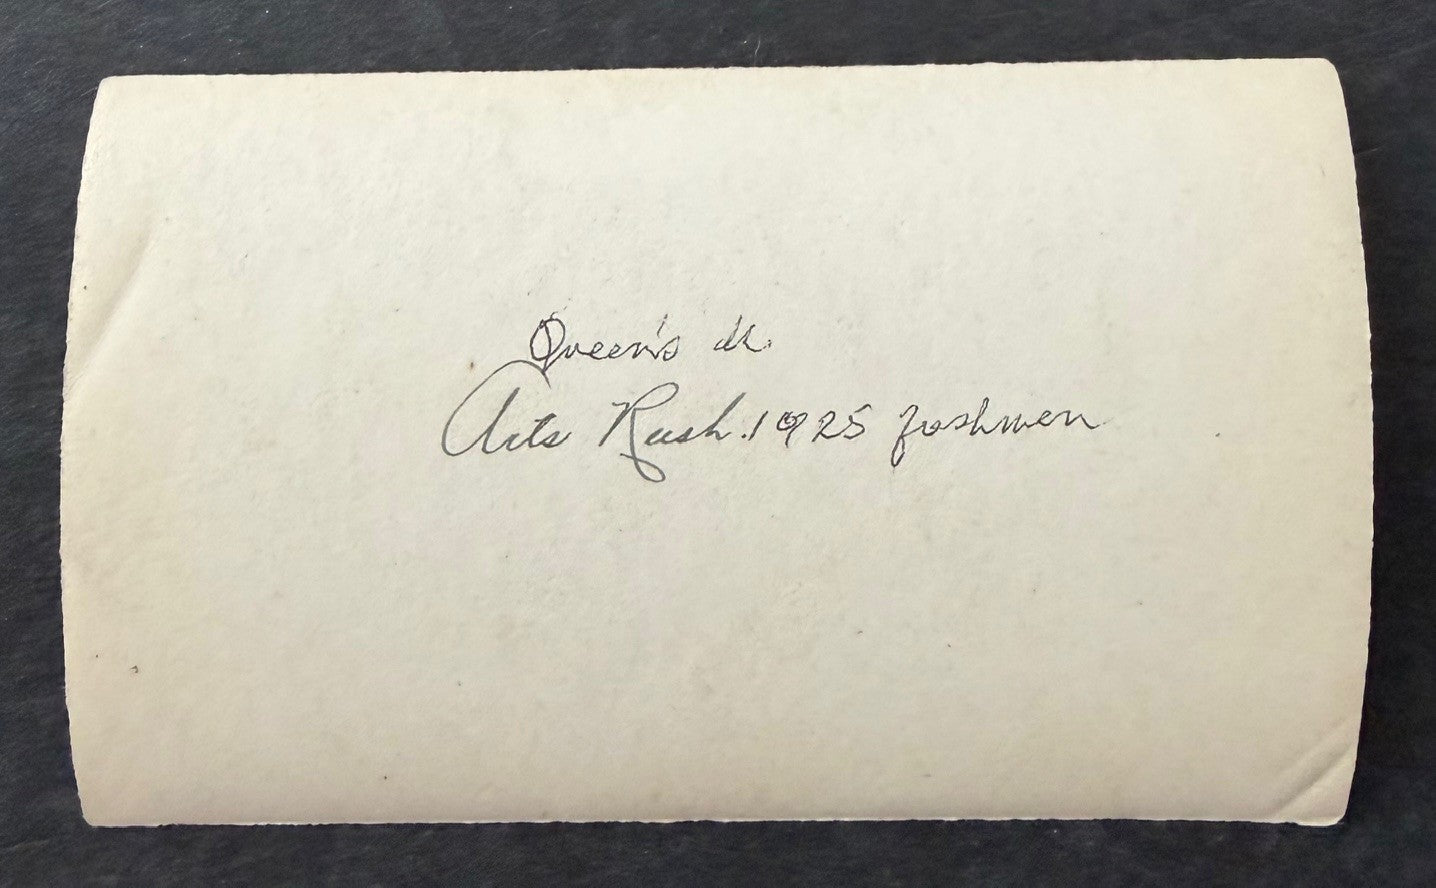 Queen's U.
Arts Rush. 1925 froshmen